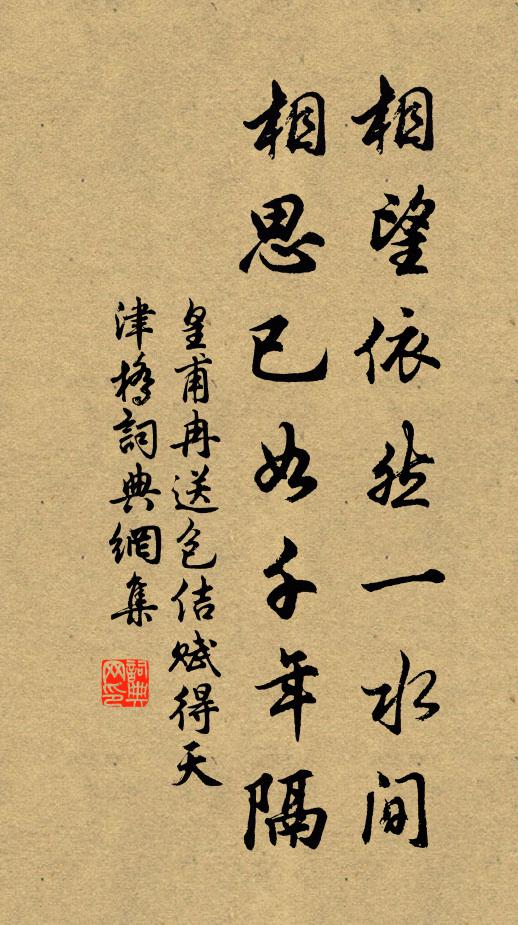 相望依然一水间
相思已如千年隔
皇甫冉送包佶赋得天
津橋詞典網集
詞典网印